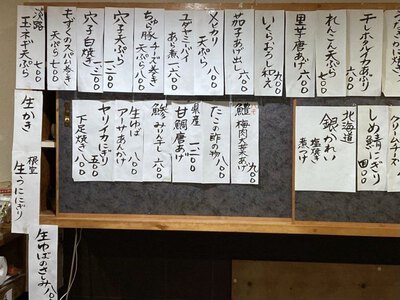 クリームチーズ
チーホルイカあぶり
六〇〇
れんこん天ぷら
七〇〇
里芋唐あげ
六〇〇
いくらおろし和え
九〇〇
茄子あげ出し
六〇〇
メヒカリ
天ぷら
八〇〇
エゲヤミバイ
あら煮
六〇〇
ちゅら豚
チーズ巻き
天ぷら
八〇〇
穴子天ぷら
一、二〇〇
穴子白焼き
一、二〇〇
もずくのスパム巻き
天ぷら
七〇〇
淡路
玉ネギ天ぷら
五〇〇
しめ鯖にぎり
四〇〇
北海道
銀かれい
塩焼き
煮つけ
鱧梅肉大葉あげ
九〇〇
たこの酢の物
八〇〇
県産
甘鯛唐あげ
一、二〇〇
鯵みりん干し
六〇〇
生ゆば
アーサあんかけ
八〇〇
ヤリイカにぎり
五〇〇
下足焼き
八〇〇
生かき
根室
生うににぎり
生ゆばのさしみ
八〇〇